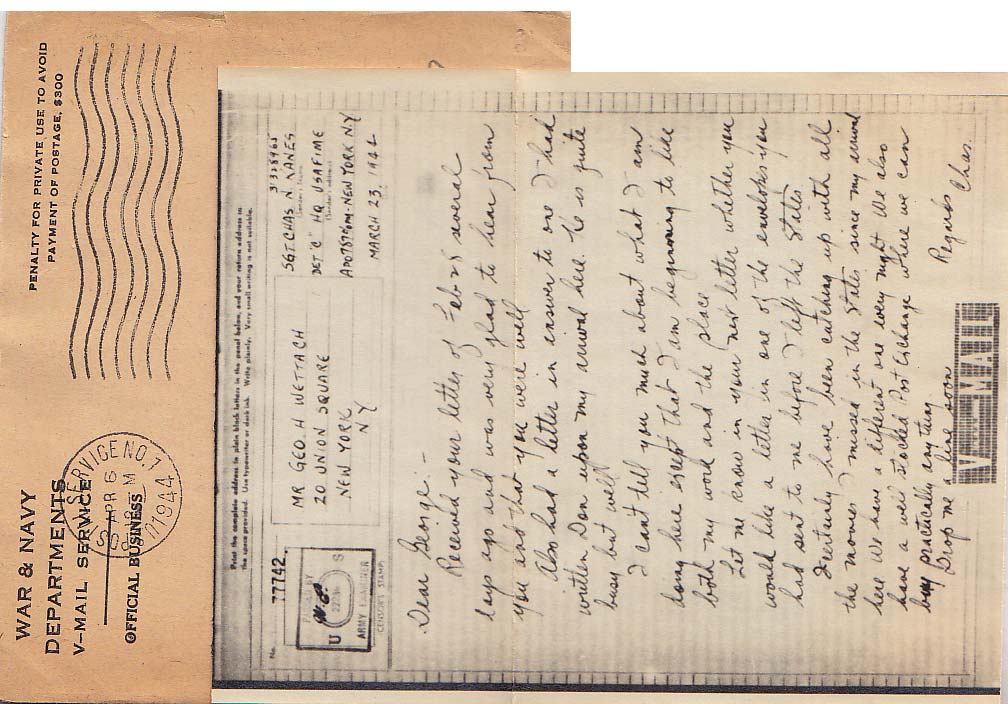 WAR & NAVY
DEPARTMENTS
V-MAIL SERVICE
OFFICIAL BUSINESS
PENALTY FOR PRIVATE USE TO AVOID
PAYMENT OF POSTAGE, $300
SERVICE NO. 1
APR 6
12 M
1944
Print the complete address in plain block letters in the panel below, and your return address in
the space provided. Use typewriter or dark ink. Write plainly. Very small writing is not suitable.
No.
77742
PASSED BY
U S
ARMY EXAMINER
CENSOR'S STAMP
MR GEO. H WETTACH
20 UNION SQUARE
NEW YORK
NY
SGT. CHAS N. KANES
(Sender's name)
DET "C" HQ USAFIME
(Sender's address)
NEW YORK NY
MARCH 23, 1944
Dear George:-
Received your letter of Feb 25 several
days ago and was very glad to hear from
you and that you were well
Also had a letter in answer to one I had
written Don upon my arrival here. He is quite
busy but well
I can't tell you much about what I am
doing here except that I am beginning to like
both my work and the place
Let me know in your next letter whether you
would like a letter in one of the envelopes you
had sent to me before I left the States.
I certainly have been catching up with all
the movies I missed in the States since my arrival
here We have a different one every night We also
have a well stocked Post Exchange where we can
buy practically any thing
Drop me a line soon
Regards
Chas.
V-MAIL